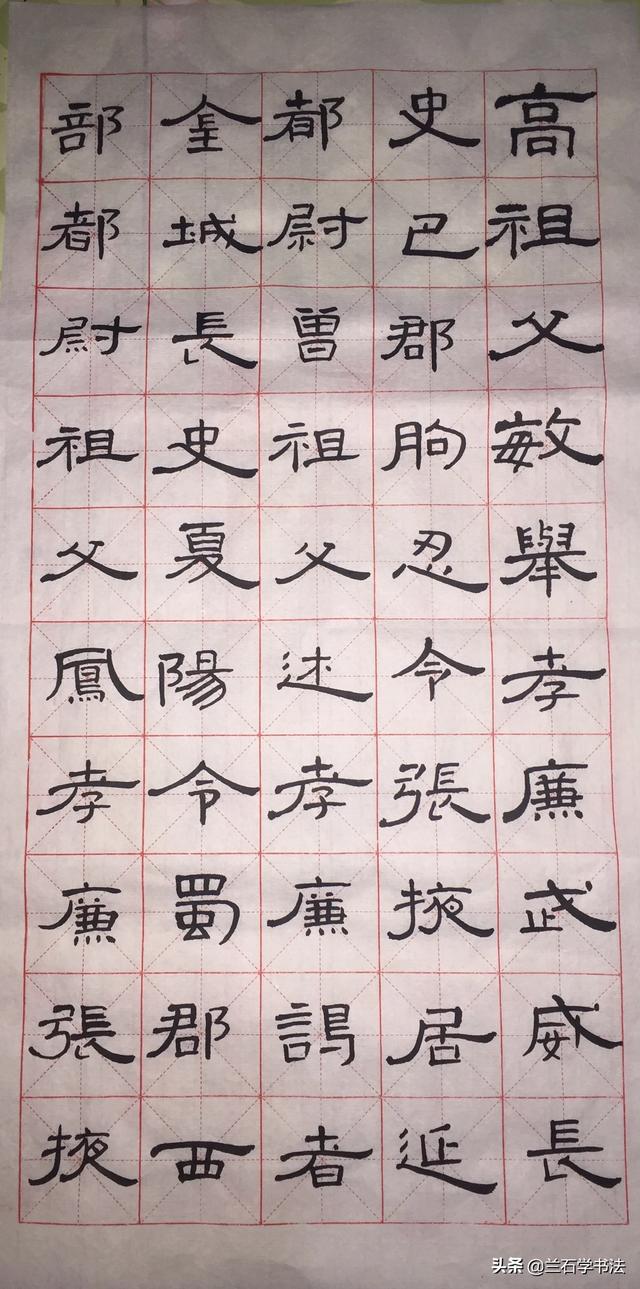 高祖父敏舉孝廉武威長
史巴郡朐忍令張掖居延
都尉曾祖父述孝廉謁者
金城長史夏陽令蜀郡西
部都尉祖父鳳孝廉張掖
头条 @兰石学书法